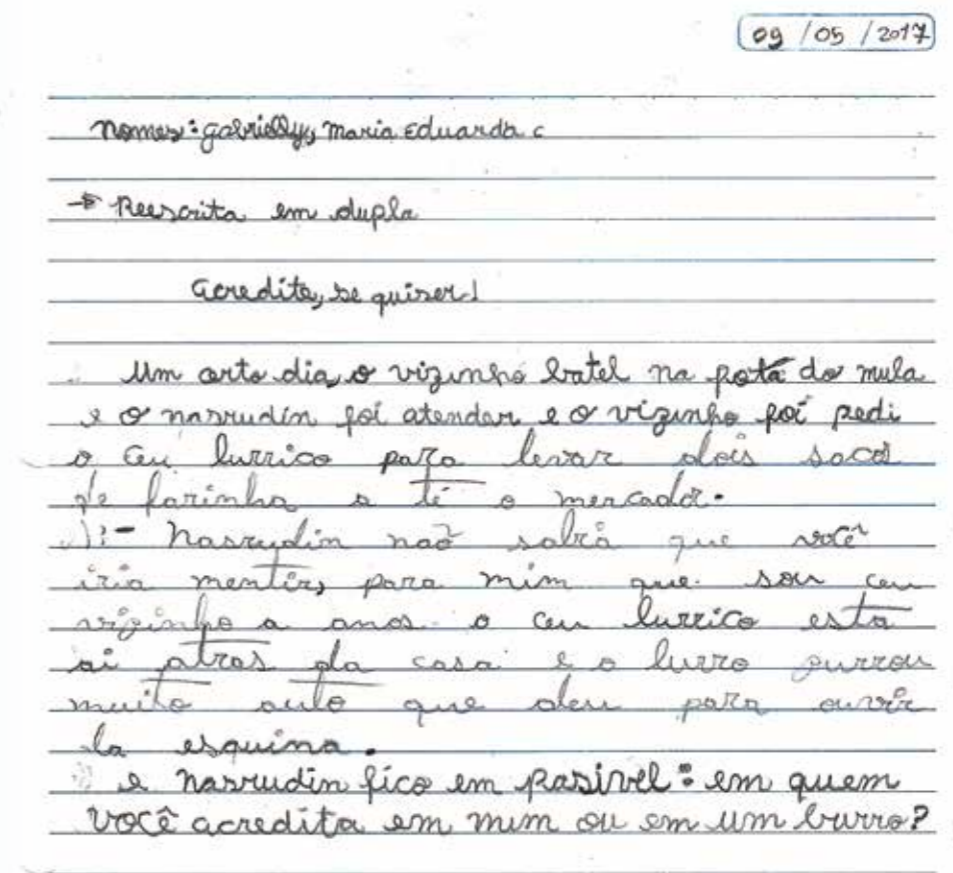 09 / 05 / 2017
Nomes: gabrielly, Maria Eduarda c
→ Reescrita em dupla
Acredite, se quiser!
Um certo dia, o vizinho batel na pota do mula
e o nasrudin foi atender e o vizinho foi pedi
o ceu burrico para levar dois sacos
de farinha a té o mercador.
- Nasrudin naõ sabia que você
iria mentir, para mim que sou ceu
vizinho a anos o ceu burrico esta
ai atras da casa e o burro zurrou
muito auto que deu para ouvir
la esquina.
e nasrudin fico em pasivel: em quem
você acredita em mim ou em um burro?